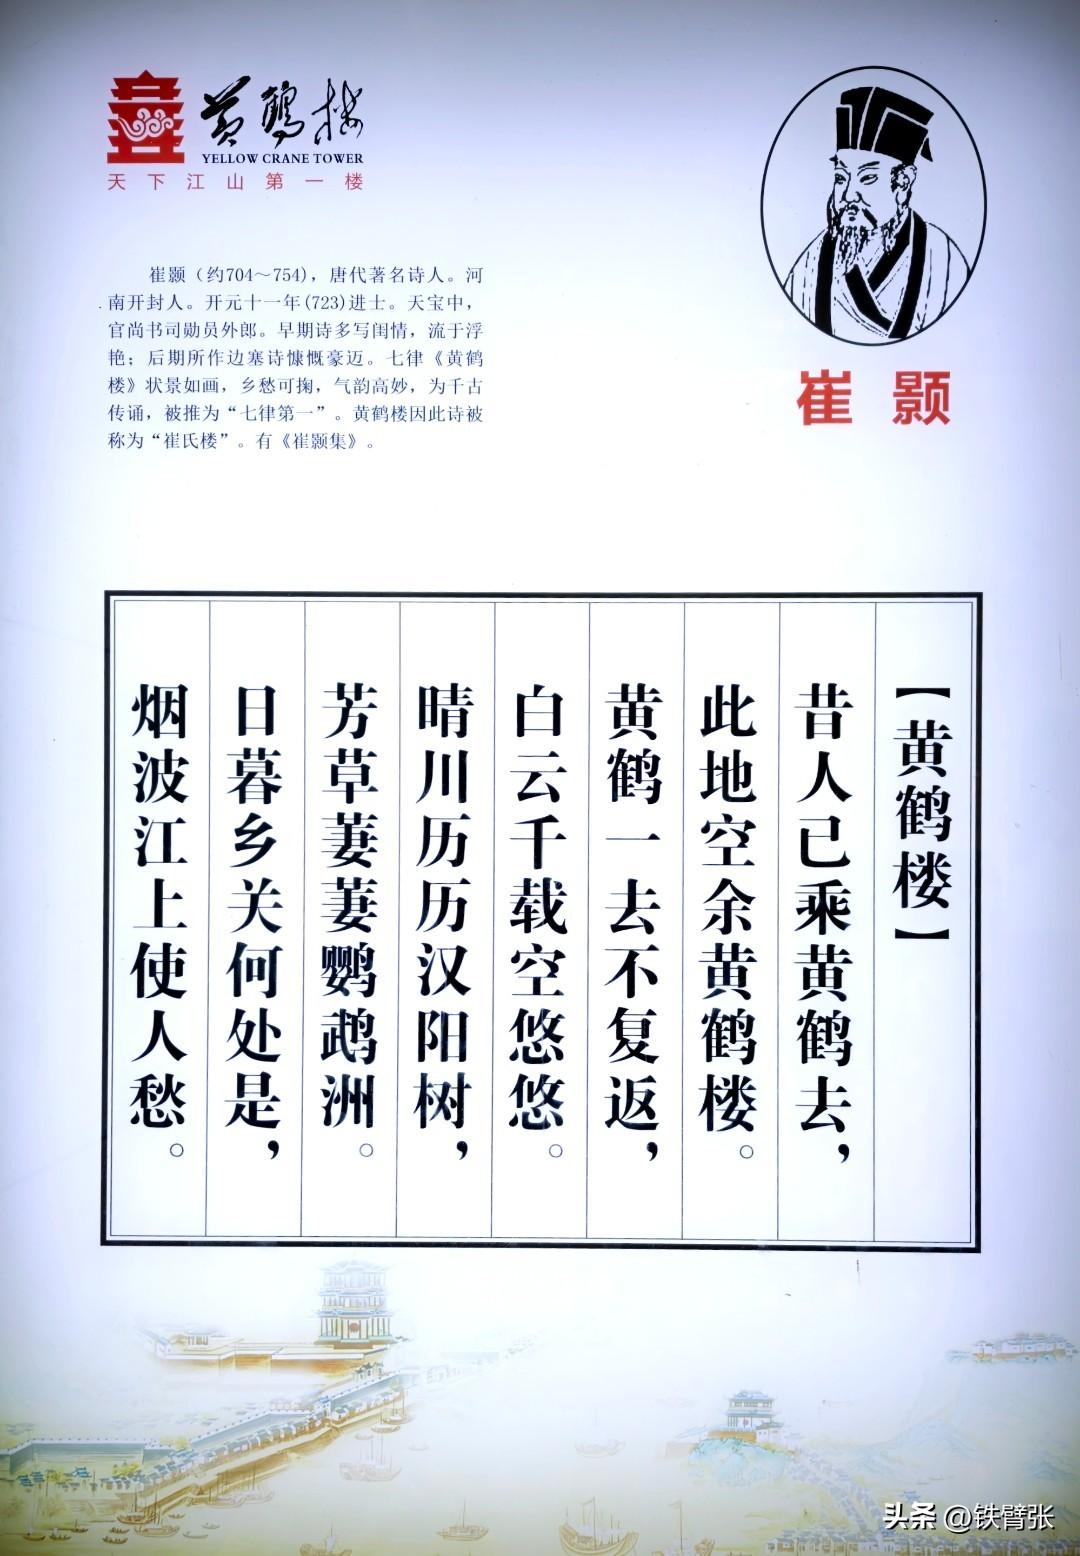 黄鹤楼
YELLOW CRANE TOWER
天下江山第一楼
崔颢(约704～754)，唐代著名诗人。河
南开封人。开元十一年(723)进士。天宝中，
官尚书司勋员外郎。早期诗多写闺情，流于浮
艳；后期所作边塞诗慷慨豪迈。七律《黄鹤
楼》状景如画，乡愁可掬，气韵高妙，为千古
传诵，被推为“七律第一”。黄鹤楼因此诗被
称为“崔氏楼”。有《崔颢集》。
崔颢
【黄鹤楼】
昔人已乘黄鹤去，
此地空余黄鹤楼。
黄鹤一去不复返，
白云千载空悠悠。
晴川历历汉阳树，
芳草萋萋鹦鹉洲。
日暮乡关何处是，
烟波江上使人愁。
头条 @铁臂张